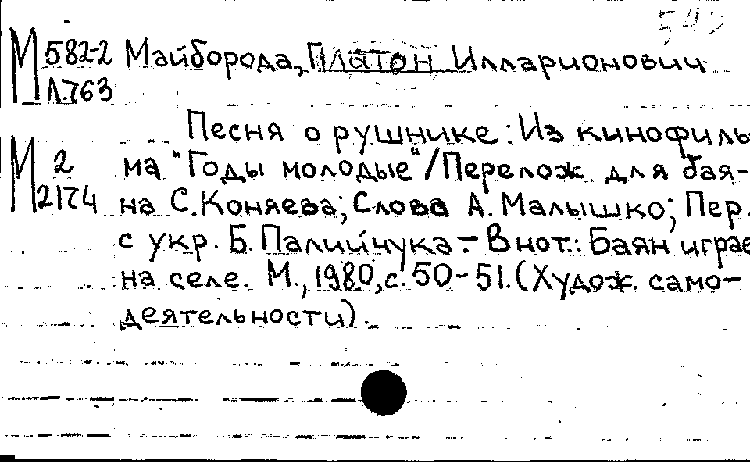 М 582-2 Майборода, Платон Илларионович
Л763
Песня о рушнике: Из кинофиль
М 2 ма "Годы молодые"/Перелож. для бая-
2174 на С.Коняева; Слова А.Малышко; Пер.
с укр. Б.Палийчука.- В нот.: Баян играе
на селе. М., 1980, с.50-51.(Худож. само-
деятельности).